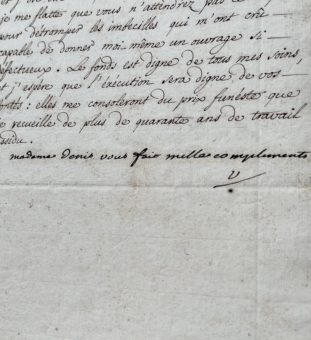 je me flatte que vous n'attendrez pas
pour détromper les imbecilles qui m'ont crû
capable de donner moi même un ouvrage si
defectueux. Le fonds est digne de tous mes soins,
et j'espère que l'éxécution sera digne de vos
elles me consoleront du prix funeste que
je recueille de plus de quarante ans de travail
ssidu.
madame denis vous fait mille complements
V